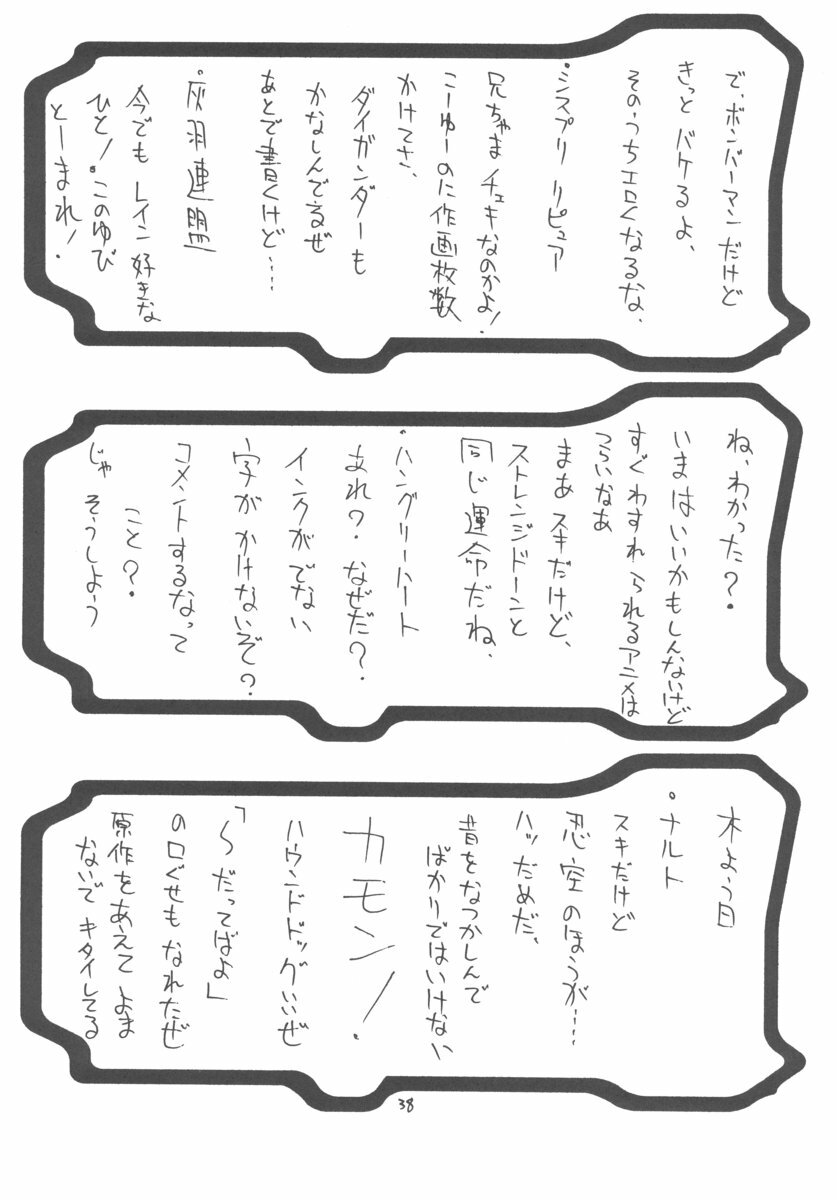 で、ボンバーマンだけど
きっと バケるよ、
そのうちエロくなるな、
・シスプリ リピュア
兄ちゃま チェキなのかよ!
こーゆーのに作画枚数
かけてさ、
ダイガンダーも
かなしんでるぜ
あとで書くけど…
・灰羽連盟
今でも レイン好きな
ひと!このゆび
とーまれ!
ね、わかった?
いまはいいかもしんないけど
すぐわすれられるアニメは
つらいなあ
まあ スキだけど、
ストレンジドーンと
同じ運命だね、
・ハングリーハート
あれ? なぜだ?
インクがでない
字が かけないぞ?
コメントするなって
こと?
じゃ そうしよう
木よう日
・ナルト
スキだけど
忍空のほうが…
ハッだめだ、
昔をなつかしんで
ばかりではいけない
カモン!
ハウンドドッグいいぜ
「〜だってばよ」
の口ぐせも なれたぜ
原作をあえて よま
ないで キタイしてる
38